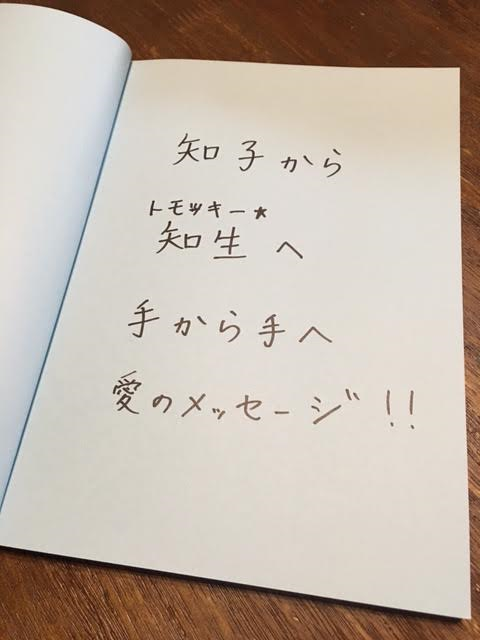 知子から
トモッキー★
知生へ
手から手へ
愛のメッセージ!!